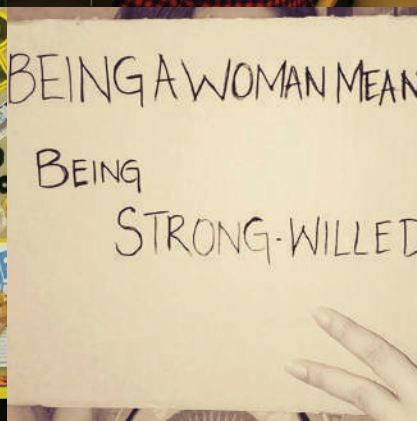 BEING A WOMAN MEAN
BEING
STRONG-WILLED